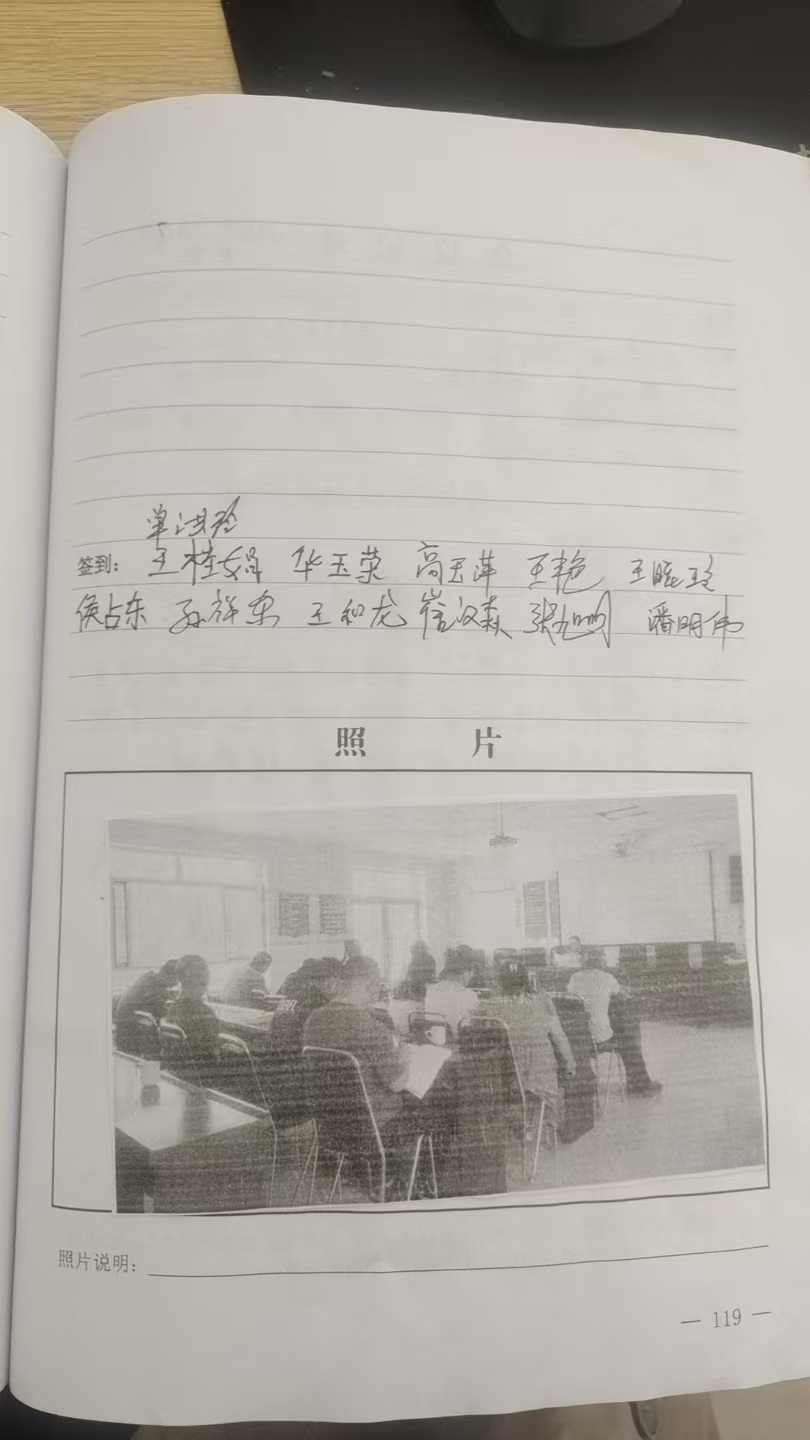 单洪玲
签到： 王桂娟 华玉荣 高玉萍 王艳 王晓玲
侯占东 孙祥东 王和龙 崔汉森 张旭明 潘明伟
照 片
照片说明：
— 119 —